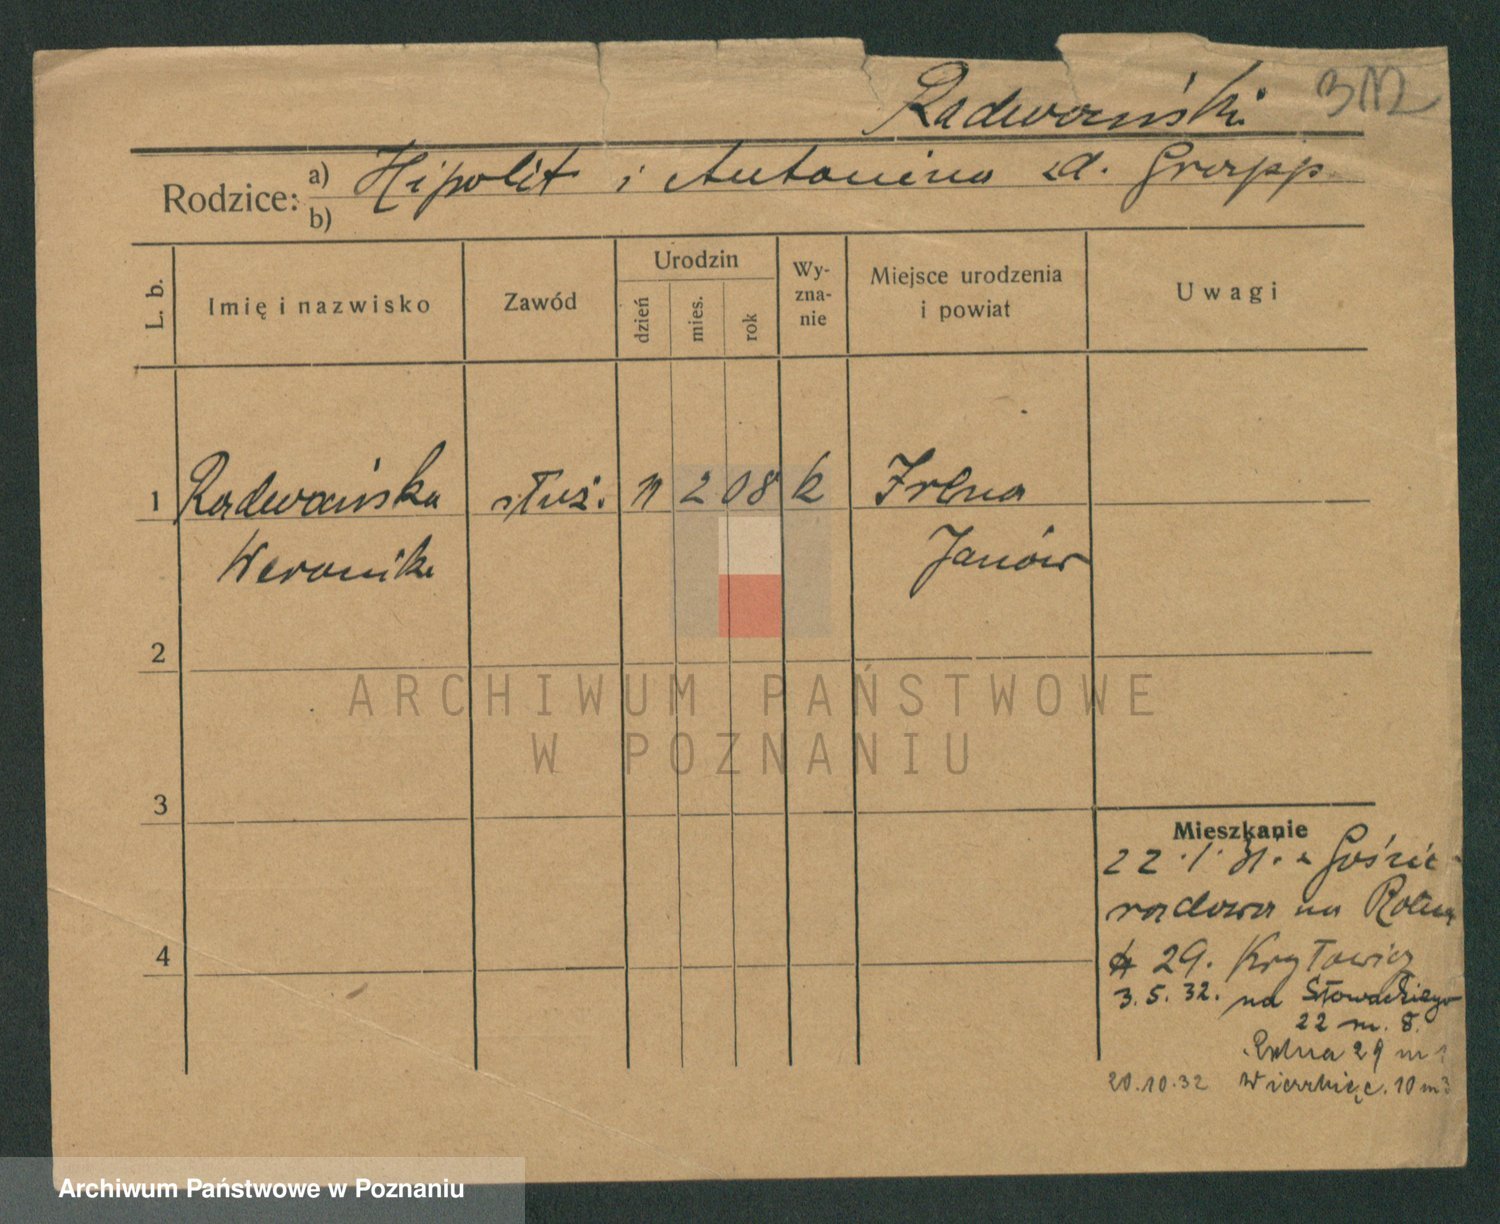 Radwański
Rodzice: a) Hipolit i Antonina zd. Grapp
b)
L. b. Imię i nazwisko Zawód Urodzin dzień mies. rok Wy-zna-nie Miejsce urodzenia i powiat Uwagi
1 Radwańska służ. 11 2 08 k Irena
Weronika Janów
2
ARCHIWUM PAŃSTWOWE
W POZNANIU
3
Mieszkanie
22.1.31. z Gości
radowa na Rolną
29.
3.5.32. na Słowackiego
22 m. 8.
Rolna 29 m
20.10.32 Wierzbięc. 10 m 3
4
Archiwum Państwowe w Poznaniu